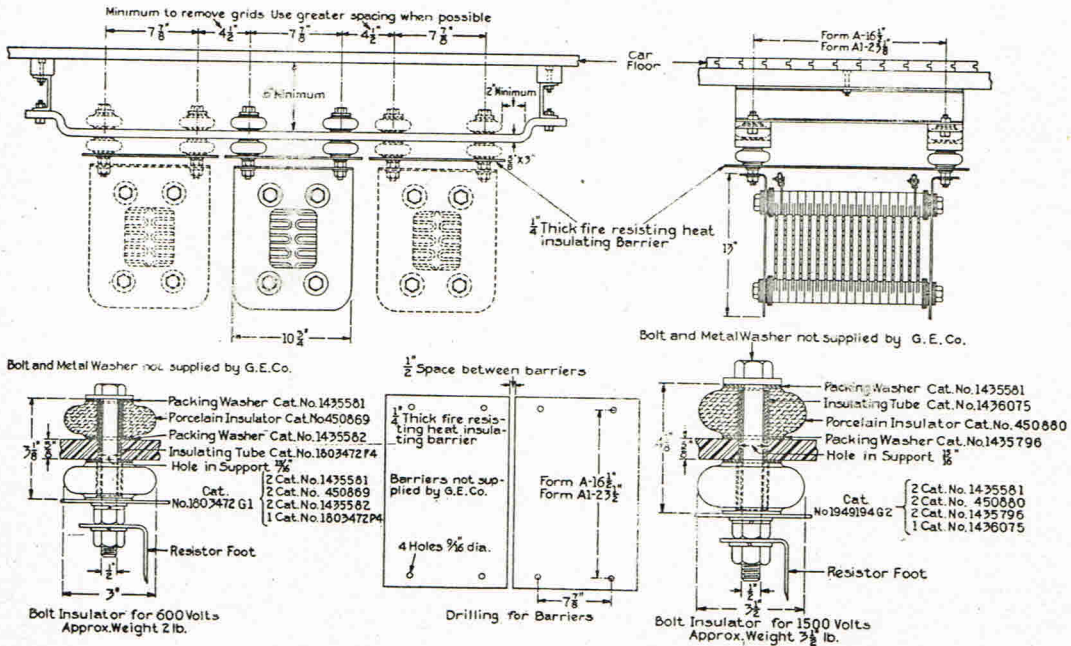 Minimum to remove grids Use greater spacing when possible
7 7/8"
4 1/2"
7 7/8"
4 1/2"
7 7/8"
Form A-16 1/2"
Form A1-23 1/8"
Car
Floor
Minimum
2" Minimum
5/8" X 3"
1/4" Thick fire resisting heat
insulating Barrier
17"
10 3/4"
Bolt and Metal Washer not supplied by G.E.Co.
Packing Washer Cat.No.1435581
Porcelain Insulator Cat.No450869
Packing Washer Cat.No.1435582
Insulating Tube Cat.No.1803472P4
Hole in Support
Cat.
No.1803472 G1
2 Cat.No.1435581
2 Cat.No. 450869
2 Cat.No.1435582
1 Cat.No.1803472P4
3 1/8"
Resistor Foot
1/2"
3"
Bolt Insulator for 600 Volts
Approx.Weight 2 lb.
1/2" Space between barriers
1/4" Thick fire resis-
ting heat insula-
ting barrier
Barriers not sup-
plied by G.E.Co.
4 Holes 9/16 dia.
Form A-16 1/2"
Form A1-23 1/2"
7 7/8"
Drilling for Barriers
Bolt and Metal Washer not supplied by G.E.Co.
Packing Washer Cat.No.1435581
Insulating Tube Cat.No.1436075
Porcelain Insulator Cat.No.450880
Packing Washer Cat.No.1435796
Hole in Support 15/16"
Cat.
No1949194G2
2 Cat.No.1435581
2 Cat.No. 450880
2 Cat.No.1435796
1 Cat.No.1436075
Resistor Foot
1/2"
3 1/2"
Bolt Insulator for 1500 Volts
Approx.Weight 3 1/2 lb.